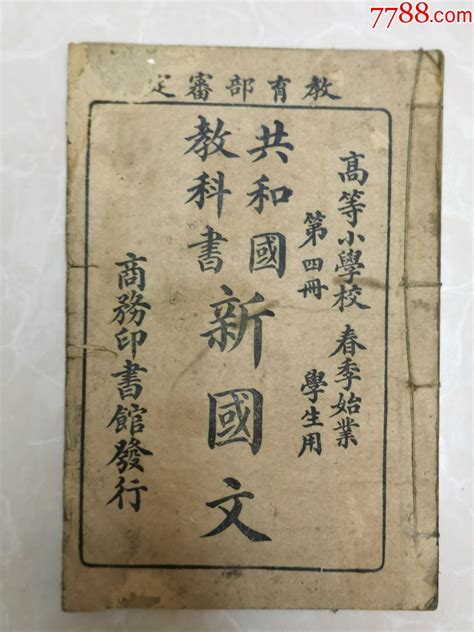 7788.com
教育部審定
高等小學校 春季始業
第四冊 學生用
共和國
教科書
新國文
商務印書館發行